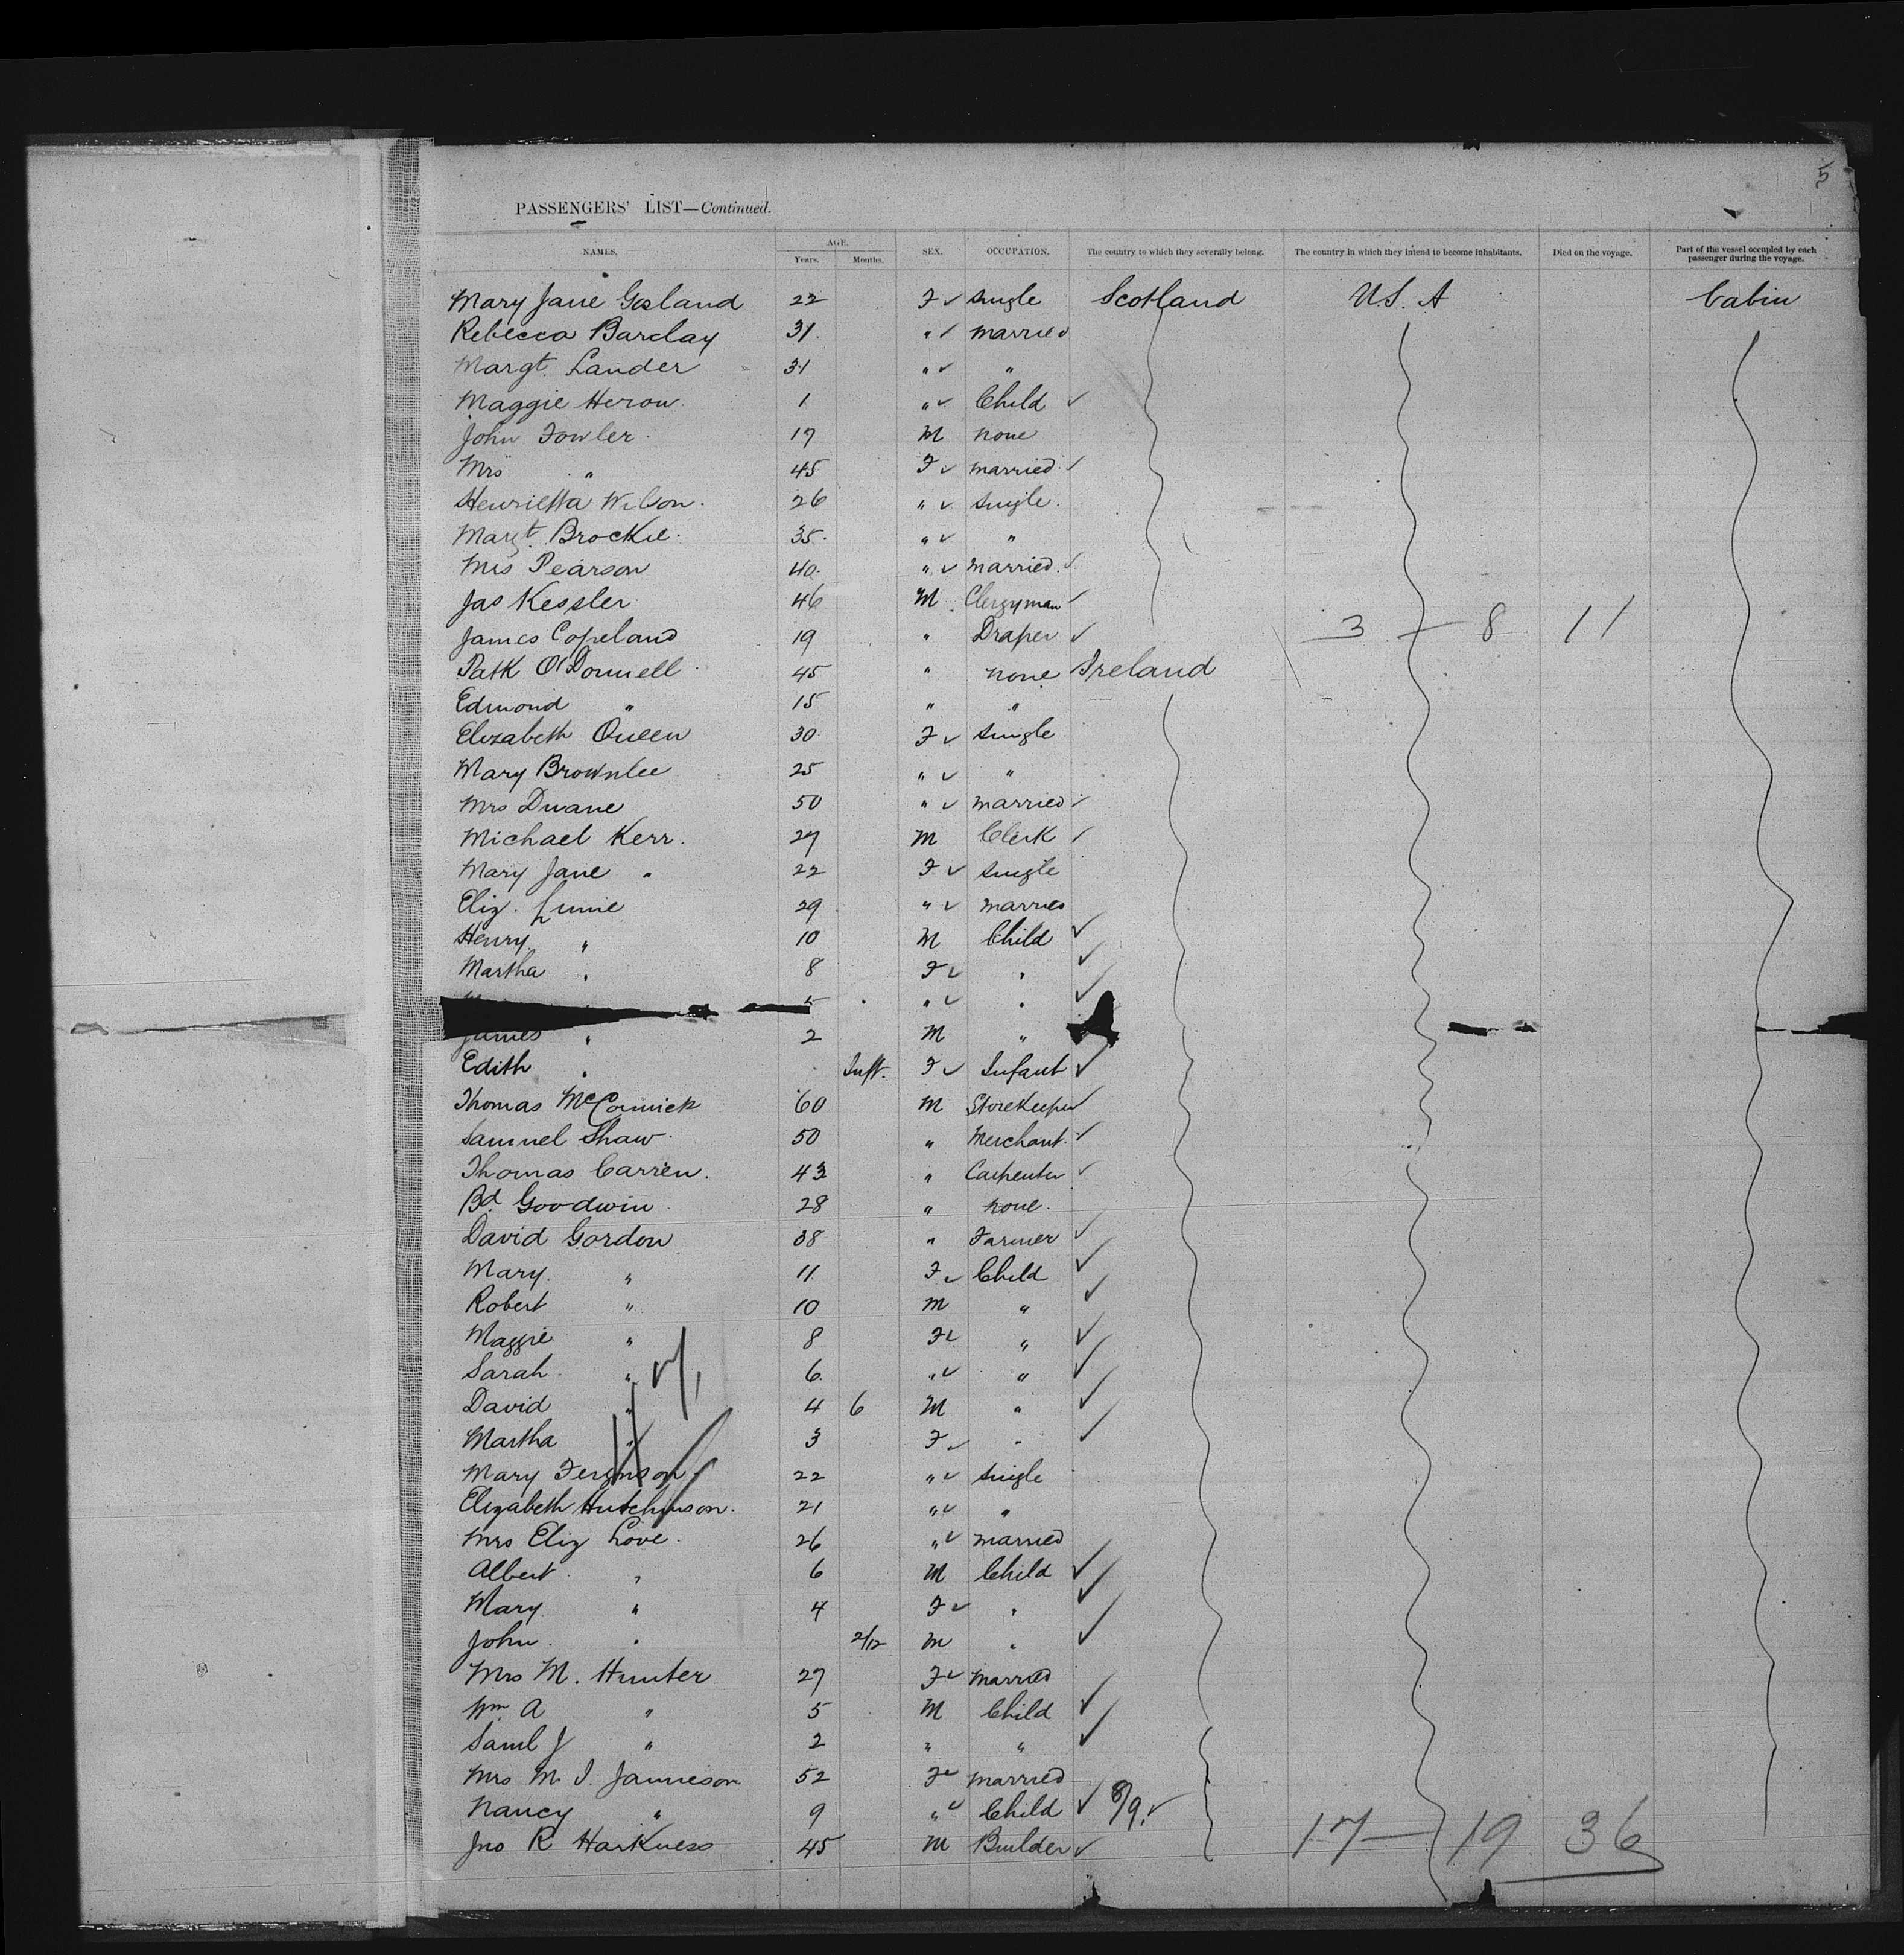 5
PASSENGERS' LIST—Continued.
NAMES. AGE. Years. Months. SEX. OCCUPATION. The country to which they severally belong. The country in which they intend to become inhabitants. Died on the voyage. Part of the vessel occupied by each passenger during the voyage.
Mary Jane 22 F ✓ Single Scotland U.S.A Cabin
Rebecca Barclay 31 " ✓ married
Margt. Lander 31 " ✓ "
Maggie Heron. 1 " ✓ Child ✓
John Fowler. 17 M none
Mrs " 45 F ✓ married. ✓
Henrietta Wilson. 26 " ✓ Single.
Margt. Brockie. 35. " ✓ "
Mrs Pearson 40. " ✓ married. ✓
Jas Kessler 46 M Clergyman ✓
James Copeland 19 " Draper ✓ 3 — 8 11
Patk O'Donnell 45 " none Ireland
Edmond " 15 " "
Elizabeth Queen 30. F ✓ Single
Mary Brownlee 25 " ✓ "
Mrs Duane 50 " ✓ married ✓
Michael Kerr. 27 M Clerk ✓
Mary Jane " 22 F ✓ Single
Eliz. 29 " ✓ married
Henry " 10 M Child ✓
Martha " 8 F ✓ " ✓
5 " ✓ " ✓
James " 2 M "
Edith " Inft. F ✓ Infant ✓
Thomas McCormick 60 M Storekeeper ✓
Samuel Shaw. 50 " Merchant. ✓
Thomas Carren. 43 " Carpenter ✓
Bd. Goodwin 28 " none.
David Gordon 38 " Farmer ✓
Mary. " 11 F ✓ Child ✓
Robert " 10 M " ✓
Maggie " 8 F ✓ " ✓
Sarah. " 6. " ✓ " ✓
David " 4 6 M " ✓
Martha " 3 F ✓ " ✓
Mary Ferguson. 22 " ✓ Single
Elizabeth Hutchinson. 21 " ✓ "
Mrs Eliz Love. 26 " ✓ married
Albert. " 6 M Child ✓
Mary. " 4 F ✓ " ✓
John. " 2/12 M " ✓
Mrs M. Hunter 27 F ✓ married
Wm. A " 5 M Child ✓
Saml J " 2 " " ✓
Mrs M. J. Jamieson 52 F ✓ married
Nancy " 9 " ✓ Child ✓ 8/9. ✓
Jno R Harkness 45 M Builder ✓ 17 — 19 36